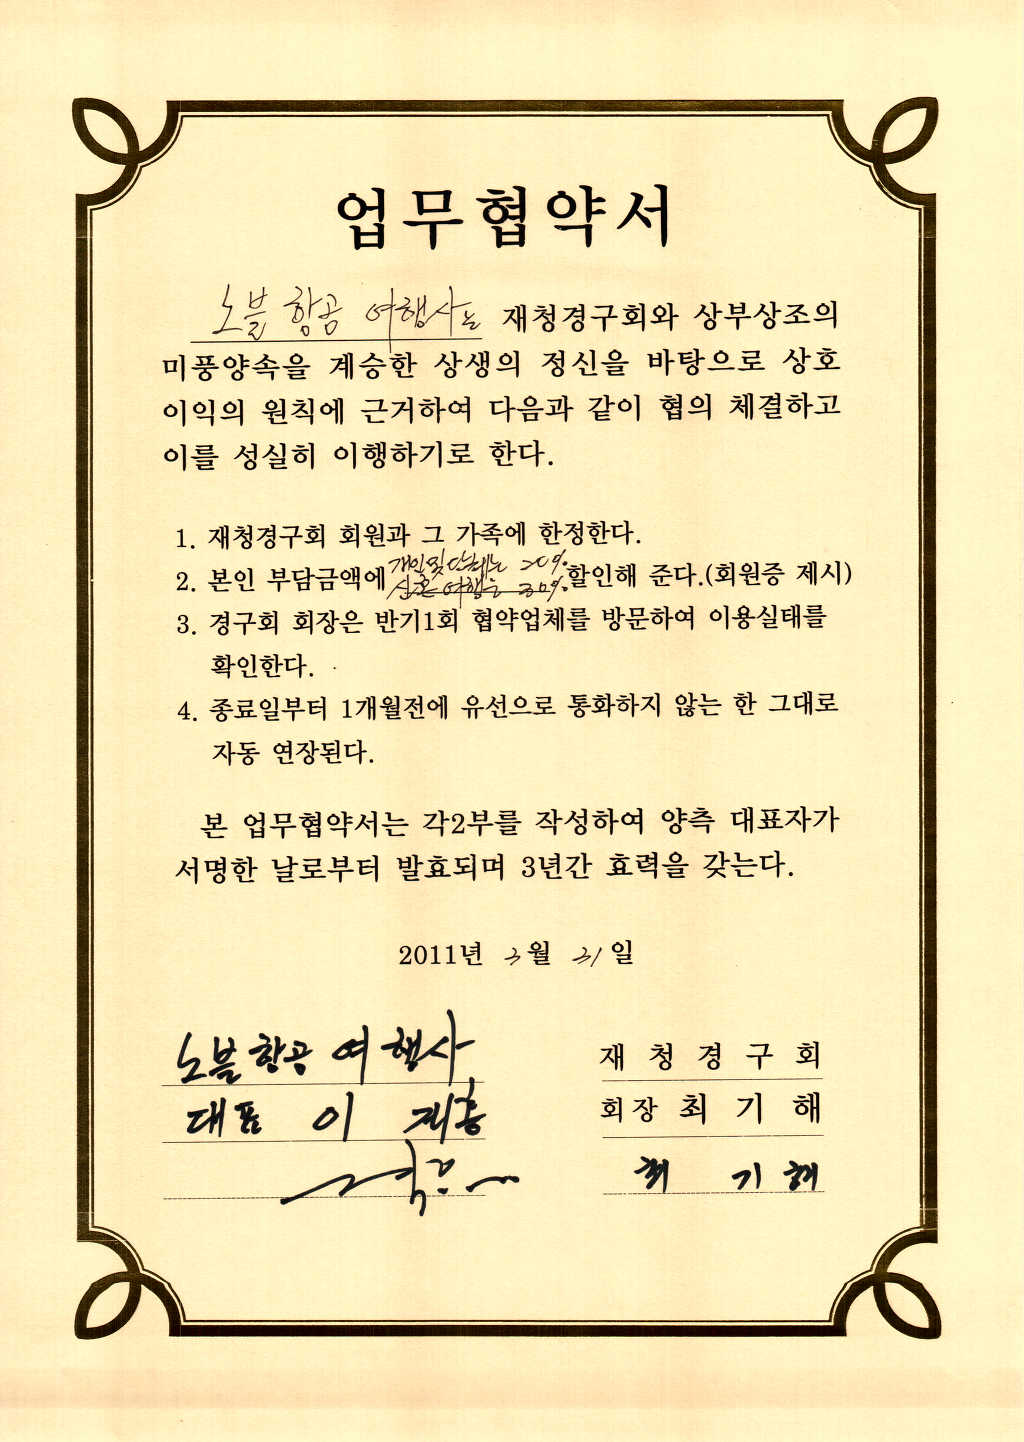 업무협약서
노블항공 여행사는 재청경구회와 상부상조의
미풍양속을 계승한 상생의 정신을 바탕으로 상호
이익의 원칙에 근거하여 다음과 같이 협의 체결하고
이를 성실히 이행하기로 한다.
1. 재청경구회 회원과 그 가족에 한정한다.
개인및단체는 20%
2. 본인 부담금액에 할인해 준다.(회원증 제시)
신혼여행은 30%
3. 경구회 회장은 반기1회 협약업체를 방문하여 이용실태를
확인한다.
4. 종료일부터 1개월전에 유선으로 통화하지 않는 한 그대로
자동 연장된다.
본 업무협약서는 각2부를 작성하여 양측 대표자가
서명한 날로부터 발효되며 3년간 효력을 갖는다.
2011년 3월 31일
노블항공 여행사
대표 이
재청경구회
회장 최기해
최기해